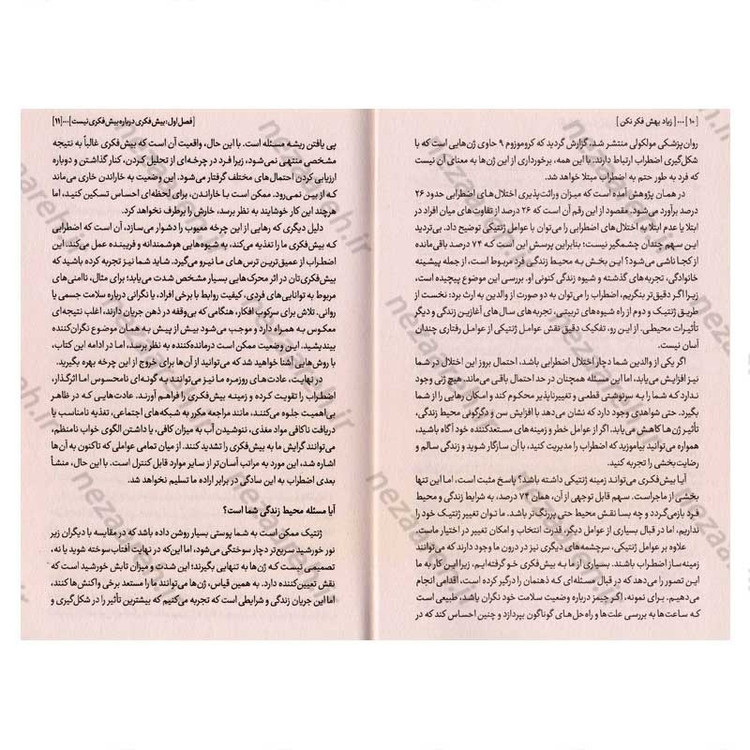 [۱۰]... [ زیاد بهش فکر نکن ]
روان‌پزشکی مولکولی منتشر شد، گزارش گردید که کروموزوم ۹ حاوی ژن‌هایی است که با
شکل‌گیری اضطراب ارتباط دارند. با این همه، برخورداری از این ژن‌ها به معنای آن نیست
که فرد به طور حتم به اضطراب مبتلا خواهد شد.
در همان پژوهش آمده است که میزان وراثت‌پذیری اختلال‌های اضطرابی حدود ۲۶
درصد برآورد می‌شود. مقصود از این رقم آن است که ۲۶ درصد از تفاوت‌های میان افراد در
ابتلا یا عدم ابتلا به اختلال‌های اضطرابی را می‌توان با عوامل ژنتیکی توضیح داد. بی‌تردید
این سهم چندان چشمگیر نیست؛ بنابراین پرسش این است که ۷۴ درصد باقی‌مانده
از کجا ناشی می‌شود؟ این بخش به محیط زندگی فرد مربوط است، از جمله پیشینه
خانوادگی، تجربه‌های گذشته و شیوه زندگی کنونی او. بررسی این موضوع پیچیده است،
زیرا اگر دقیق‌تر بنگریم، اضطراب را می‌توان به دو صورت از والدین به ارث برد: نخست از
طریق ژنتیک و دوم از راه شیوه‌های تربیتی، تجربه‌های سال‌های آغازین زندگی و دیگر
تأثیرات محیطی. از این رو، تفکیک دقیق نقش عوامل ژنتیکی از عوامل رفتاری چندان
آسان نیست.
اگر یکی از والدین شما دچار اختلال اضطرابی باشد، احتمال بروز این اختلال در شما
نیز افزایش می‌یابد، اما این مسئله همچنان در حد احتمال باقی می‌ماند. هیچ ژنی وجود
ندارد که شما را به سرنوشتی قطعی و تغییرناپذیر محکوم کند و امکان رهایی را از شما
بگیرد. حتی شواهدی وجود دارد که نشان می‌دهد با افزایش سن و دگرگونی محیط زندگی،
تأثیر ژن‌ها کاهش می‌یابد. اگر از عوامل خطر و زمینه‌های مستعدکننده خود آگاه باشید،
همواره می‌توانید بیاموزید که اضطراب را مدیریت کنید، با آن سازگار شوید و زندگی سالم و
رضایت‌بخشی را تجربه کنید.
آیا بیش‌فکری می‌تواند زمینه ژنتیکی داشته باشد؟ پاسخ مثبت است، اما این تنها
بخشی از ماجراست. سهم قابل توجهی از آن، همان ۷۴ درصد، به شرایط زندگی و محیط
فرد بازمی‌گردد و چه بسا نقش محیط حتی پررنگ‌تر باشد. ما توان تغییر ژنتیک خود را
نداریم، اما در قبال بسیاری از عوامل دیگر، قدرت انتخاب و امکان تغییر در اختیار ماست.
علاوه بر عوامل ژنتیکی، سرچشمه‌های دیگری نیز در درون ما وجود دارند که می‌توانند
زمینه‌ساز اضطراب باشند. بسیاری از ما به بیش‌فکری خو گرفته‌ایم، زیرا این کار به ما
این تصور را می‌دهد که در قبال مسئله‌ای که ذهنمان را درگیر کرده است، اقدامی انجام
می‌دهیم. برای نمونه، اگر جیمز درباره وضعیت سلامت خود نگران باشد، طبیعی است
که ساعت‌ها به بررسی علت‌ها و راه‌حل‌های گوناگون بپردازد و چنین احساس کند که در
[ فصل اول: بیش‌فکری درباره بیش‌فکری نیست ]...[۱۱]
پی یافتن ریشه مسئله است. با این حال، واقعیت آن است که بیش‌فکری غالباً به نتیجه
مشخصی منتهی نمی‌شود، زیرا فرد در چرخه‌ای از تحلیل کردن، کنار گذاشتن و دوباره
ارزیابی کردن احتمال‌های مختلف گرفتار می‌شود. این وضعیت به خاراندن خاری می‌ماند
که از بین نمی‌رود. ممکن است با خاراندن، برای لحظه‌ای احساس تسکین کنید، اما
هرچند این کار خوشایند به نظر برسد، خارش را برطرف نخواهد کرد.
دلیل دیگری که رهایی از این چرخه معیوب را دشوار می‌سازد، آن است که اضطرابی
که بیش‌فکری ما را تغذیه می‌کند، به شیوه‌هایی هوشمندانه و فریبنده عمل می‌کند. این
اضطراب از عمیق‌ترین ترس‌های ما نیرو می‌گیرد. شاید شما نیز تجربه کرده باشید که
بیش‌فکری‌تان در اثر محرک‌هایی بسیار مشخص شدت می‌یابد؛ برای مثال، ناامنی‌های
مربوط به توانایی‌های فردی، کیفیت روابط با برخی افراد، یا نگرانی درباره سلامت جسمی یا
روانی. تلاش برای سرکوب افکار، هنگامی که بی‌وقفه در ذهن جریان دارند، اغلب نتیجه‌ای
معکوس به همراه دارد و موجب می‌شود بیش از پیش به همان موضوع نگران‌کننده
بیندیشید. این وضعیت ممکن است درمانده‌کننده به نظر برسد، اما در ادامه این کتاب،
با روش‌هایی آشنا خواهید شد که می‌توانید از آن‌ها برای خروج از این چرخه بهره بگیرید.
در نهایت، عادت‌های روزمره ما نیز می‌توانند به گونه‌ای نامحسوس اما اثرگذار،
اضطراب را تقویت کرده و زمینه بیش‌فکری را فراهم آورند. عادت‌هایی که در ظاهر
بی‌اهمیت جلوه می‌کنند، مانند مراجعه مکرر به شبکه‌های اجتماعی، تغذیه نامناسب یا
دریافت ناکافی مواد مغذی، ننوشیدن آب به میزان کافی، یا داشتن الگوی خواب نامنظم،
می‌توانند گرایش ما به بیش‌فکری را تشدید کنند. از میان تمامی عواملی که تاکنون به آن‌ها
اشاره شد، این مورد به مراتب آسان‌تر از سایر موارد قابل کنترل است. با این حال، منشأ
بعدی اضطراب به این سادگی در برابر اراده ما تسلیم نخواهد شد.
آیا مسئله محیط زندگی شما است؟
ژنتیک ممکن است به شما پوستی بسیار روشن داده باشد که در مقایسه با دیگران زیر
نور خورشید سریع‌تر دچار سوختگی می‌شود، اما این‌که در نهایت آفتاب‌سوخته شوید یا نه،
تصمیمی نیست که ژن‌ها به تنهایی بگیرند؛ این شدت و میزان تابش خورشید است که
نقش تعیین‌کننده دارد. به همین قیاس، ژن‌ها می‌توانند ما را مستعد برخی واکنش‌ها کنند،
اما این جریان زندگی و شرایطی است که تجربه می‌کنیم که بیشترین تأثیر را در شکل‌گیری و
nezabeh.ir